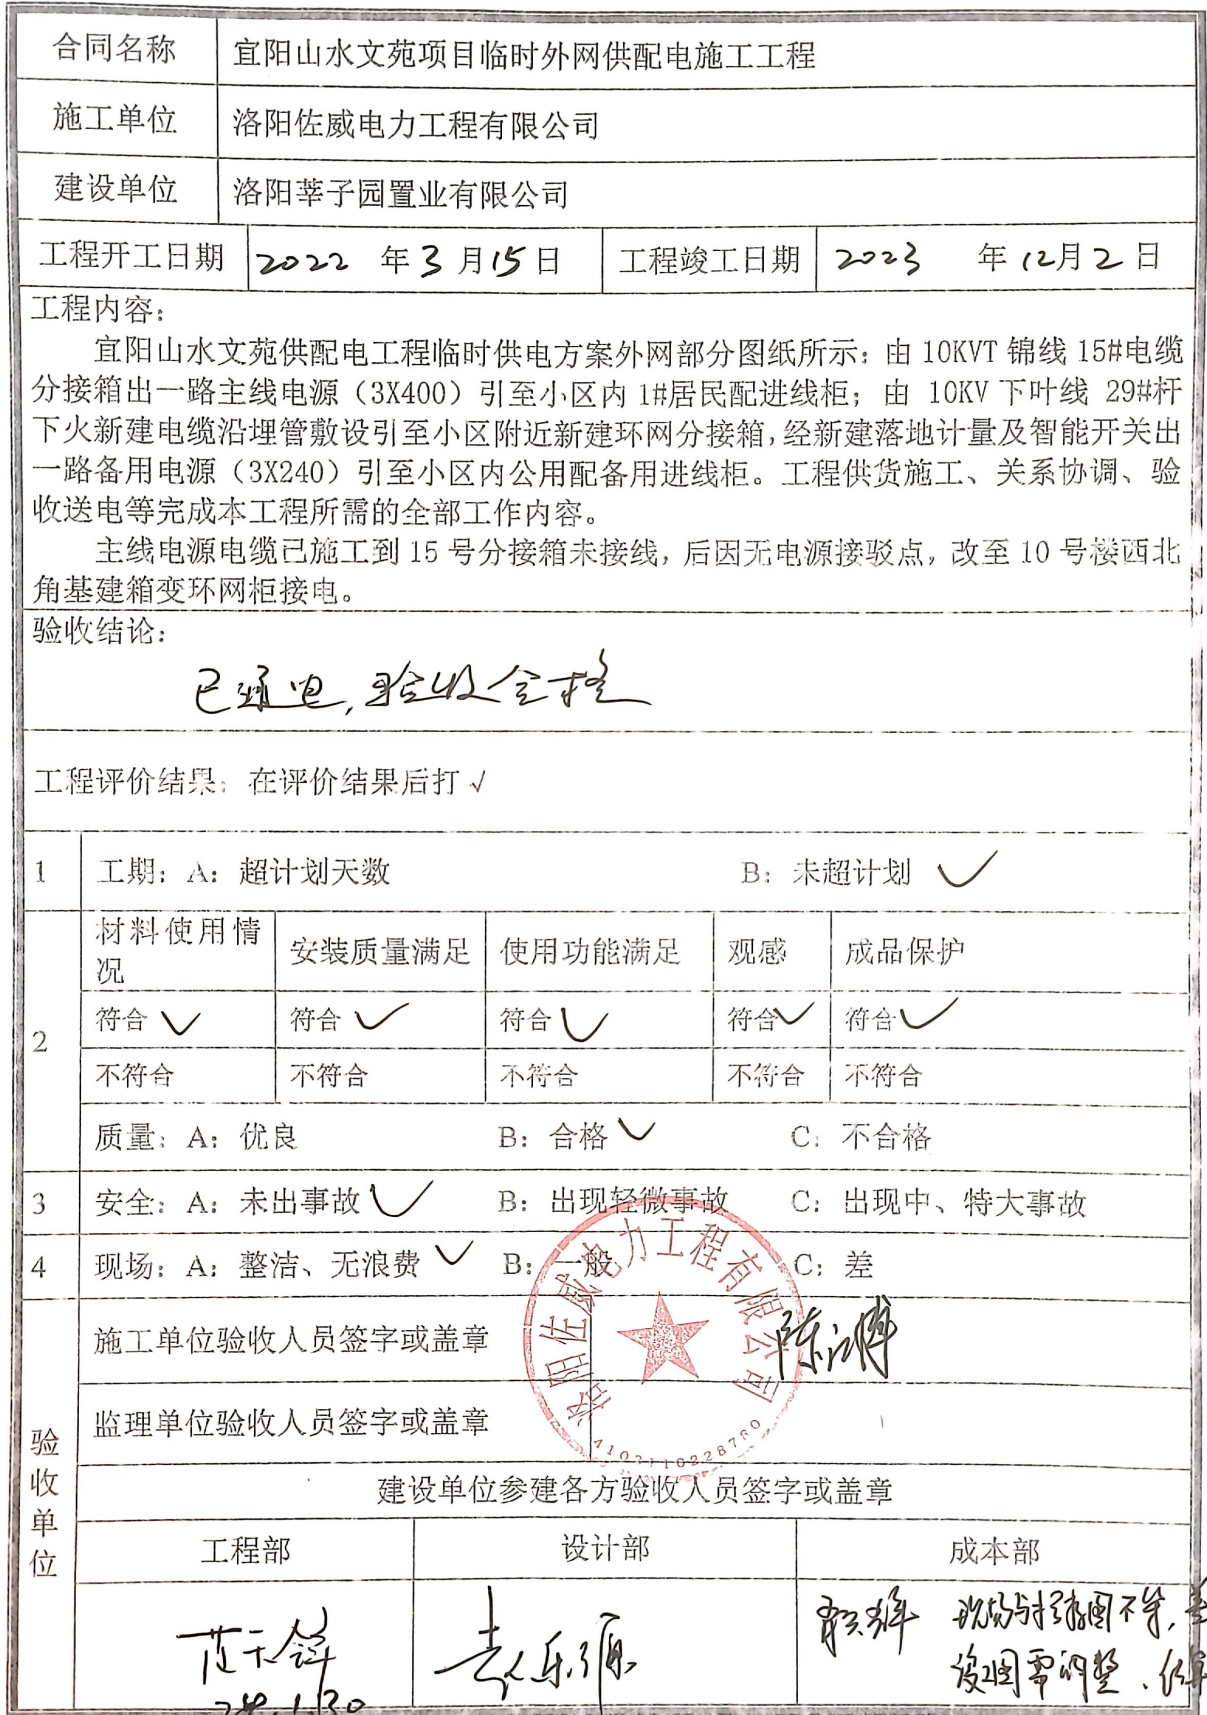 合同名称 宜阳山水文苑项目临时外网供配电施工工程
施工单位 洛阳佐威电力工程有限公司
建设单位 洛阳莘子园置业有限公司
工程开工日期 2022 年 3 月 15 日 工程竣工日期 2023 年 12 月 2 日
工程内容：
宜阳山水文苑供配电工程临时供电方案外网部分图纸所示：由 10KVT 锦线 15#电缆
分接箱出一路主线电源（3X400）引至小区内 1#居民配进线柜；由 10KV 下叶线 29#杆
下火新建电缆沿埋管敷设引至小区附近新建环网分接箱，经新建落地计量及智能开关出
一路备用电源（3X240）引至小区内公用配备用进线柜。工程供货施工、关系协调、验
收送电等完成本工程所需的全部工作内容。
主线电源电缆已施工到 15 号分接箱未接线，后因无电源接驳点，改至 10 号楼西北
角基建箱变环网柜接电。
验收结论：
已通电，验收合格
工程评价结果：在评价结果后打√
1 工期：A：超计划天数 B：未超计划 ✓
材料使用情况 安装质量满足 使用功能满足 观感 成品保护
2 符合 ✓ 符合 ✓ 符合 ✓ 符合 ✓ 符合 ✓
不符合 不符合 不符合 不符合 不符合
质量：A：优良 B：合格 ✓ C：不合格
3 安全：A：未出事故 ✓ B：出现轻微事故 C：出现中、特大事故
4 现场：A：整洁、无浪费 ✓ B：一般 C：差
验收单位
施工单位验收人员签字或盖章
洛阳佐威电力工程有限公司
监理单位验收人员签字或盖章
建设单位参建各方验收人员签字或盖章
工程部 设计部 成本部
现场与招标图不符，
图需调整、
24.1.30